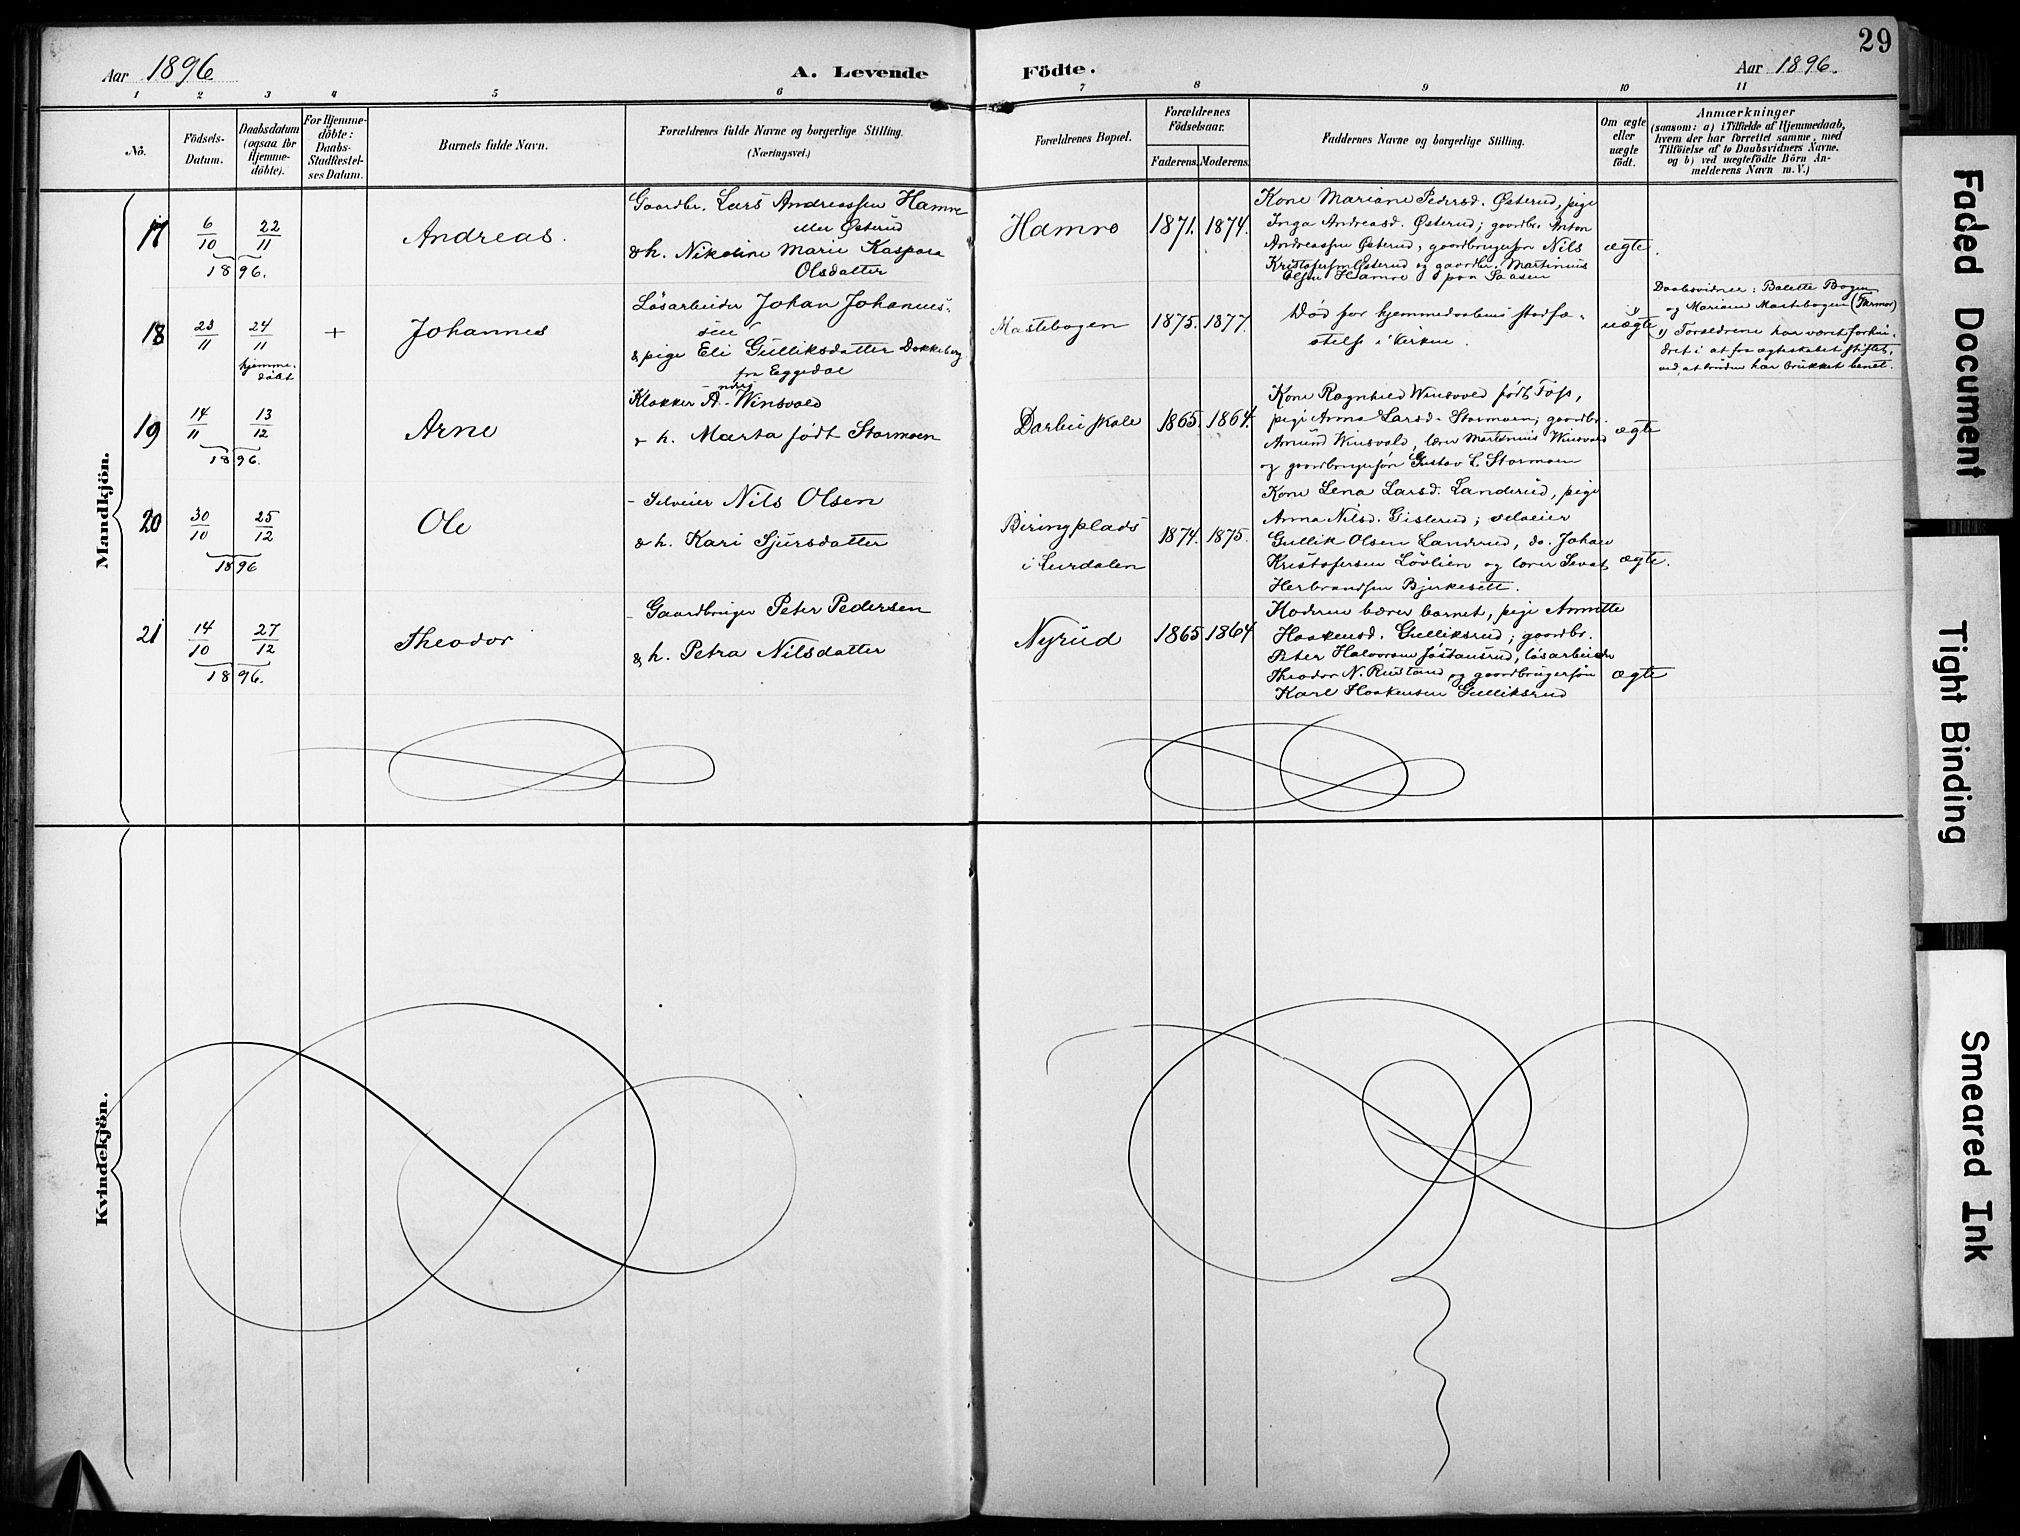 29
Aar 1896
A. Levende
Födte.
Aar 1896.
1 2 3 4 5 6 7 8 9 10 11
No.
Födsels-
Datum.
Daabsdatum
(ogsaa for
Hjemme-
döbte).
For Hjemme-
döbte:
Daabs-
Stadfæstel-
ses Datum.
Barnets fulde Navn.
Forældrenes fulde Navne og borgerlige Stilling.
(Næringsvei.)
Forældrenes Bopæl.
Forældrenes
Födselsaar.
Faderens. Moderens.
Faddernes Navne og borgerlige Stilling.
Om ægte
eller
uægte
födt.
Anmærkninger
(saasom: a) i Tilfælde af Hjemmedaab,
hvem der har forrettet samme, med
Tilföielse af to Daabsvidners Navne.
og b) ved uægtefödte Börn An-
melderens Navn m. V.)
Mandkjön.
17
6/10 22/11
1896.
Andreas.
Gaardbr. Lars Andreassen Hamre
eller Østerud
& h. Nikoline Marie Kaspara
Olsdatter
Hamre
1871. 1874.
Kone Mariane Pedersd. Østerud, pige
Inga Andreasd. Østerud; gaardbr. Anton
Andreassen Østerud, gaardbrugersøn Nils
Kristofersen Østerud og gaardbr. Martinius
Olsen Hamre paa Saasen
ægte.
18
23/11 24/11
hjemme-
døbt
+
Johannes
Løsarbeider Johan Johannes-
sen
& pige Eli Gulliksdatter Dokkeberg
fra Eggedal
Mastebogen
1875. 1877.
Død før hjemmedaabens stadfæ-
stelse i kirken.
uægte
Daabsvidner: Balette Bogen
og Mariane Mastebogen (Farmor)
1) Forældrene har været forhin-
dret i at faa ægteskabet stiftet,
ved, at bruden har brukket benet.
19
14/11 13/12
1896.
Arne
Klokker A. Winsvold
& h. Marta født Stormoen
Darbu skole
1865. 1864.
Kone Ragnhild Winsvold født Foss,
pige Anna Larsd. Stormoen; gaardbr.
Amund Winsvold, lærer Martinius Winsvold
og gaardbrugersøn Gustav L. Stormoen
ægte
20
30/10 25/12
1896
Ole
- Selveier Nils Olsen
& h. Kari Sjursdatter
Biringplads
i Lurdalen
1874. 1875.
Kone Lena Larsd. Landerud, pige
Anna Nilsd. Gislerud; selveier
Gullik Olsen Landerud, do. Johan
Kristofersen Løvlien og lærer Sevat
Herbrandsen Bjerkesett.
ægte.
21
14/10 27/12
1896.
Theodor
- Gaardbruger Peter Pedersen
& h. Petra Nilsdatter
Nyrud
1865 1864
Moderen bærer barnet, pige Annette
Haakensd. Gulliksrud; gaardbr.
Peter Halvorsen Jøstansrud, løsarbeider
Theodor N. Rustand og gaardbrugersøn
Karl Haakensen Gulliksrud
ægte
Kvindekjön.
Faded Document
Tight Binding
Smeared Ink